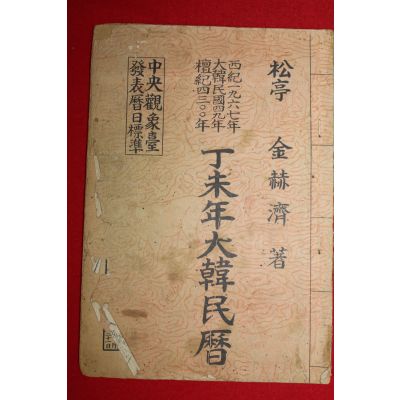 松亭 金赫濟 著
丁未年大韓民曆
西紀一九六七年
大韓民國四九年
檀紀四三〇〇年
中央觀象臺
發表曆日標準